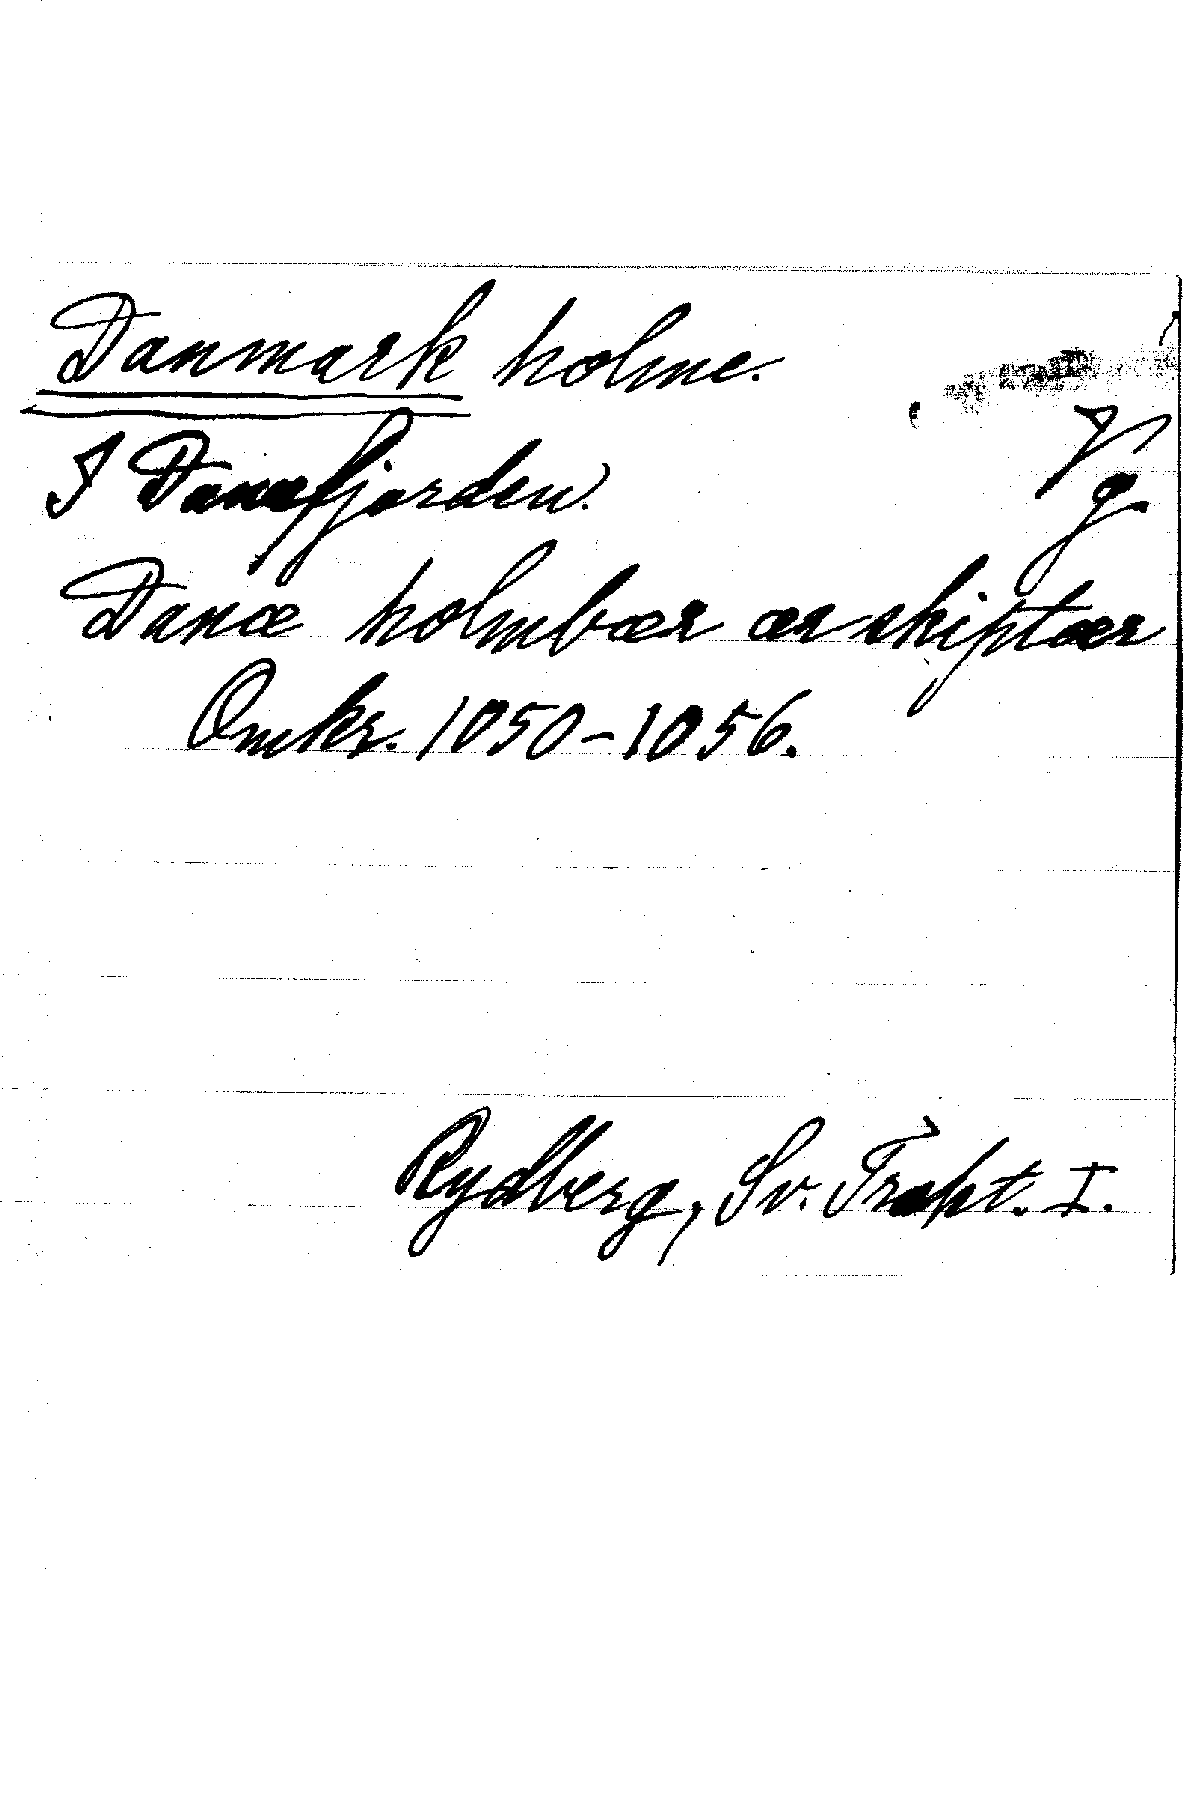 Danmark holme.
I Danafjorden. Vg.
Danæ holmbær ær skiptær
Omkr. 1050-1056.
Rydberg, Sv. Trakt. I.